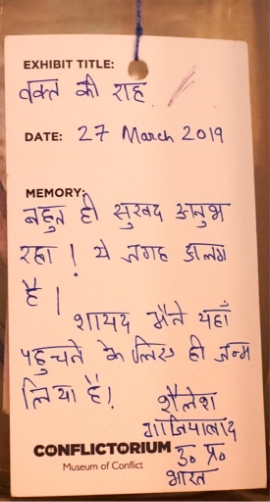 EXHIBIT TITLE:
वक्त की राह
DATE: 27 March 2019
MEMORY:
बहुत ही सुखद अनुभ
रहा! ये जगह अलग
है।
शायद मैने यहाँ
पहुचने के लिए ही जन्म
लिया है!
शैलेश
गाजियाबाद
उ० प्र०
भारत
CONFLICTORIUM
Museum of Conflict